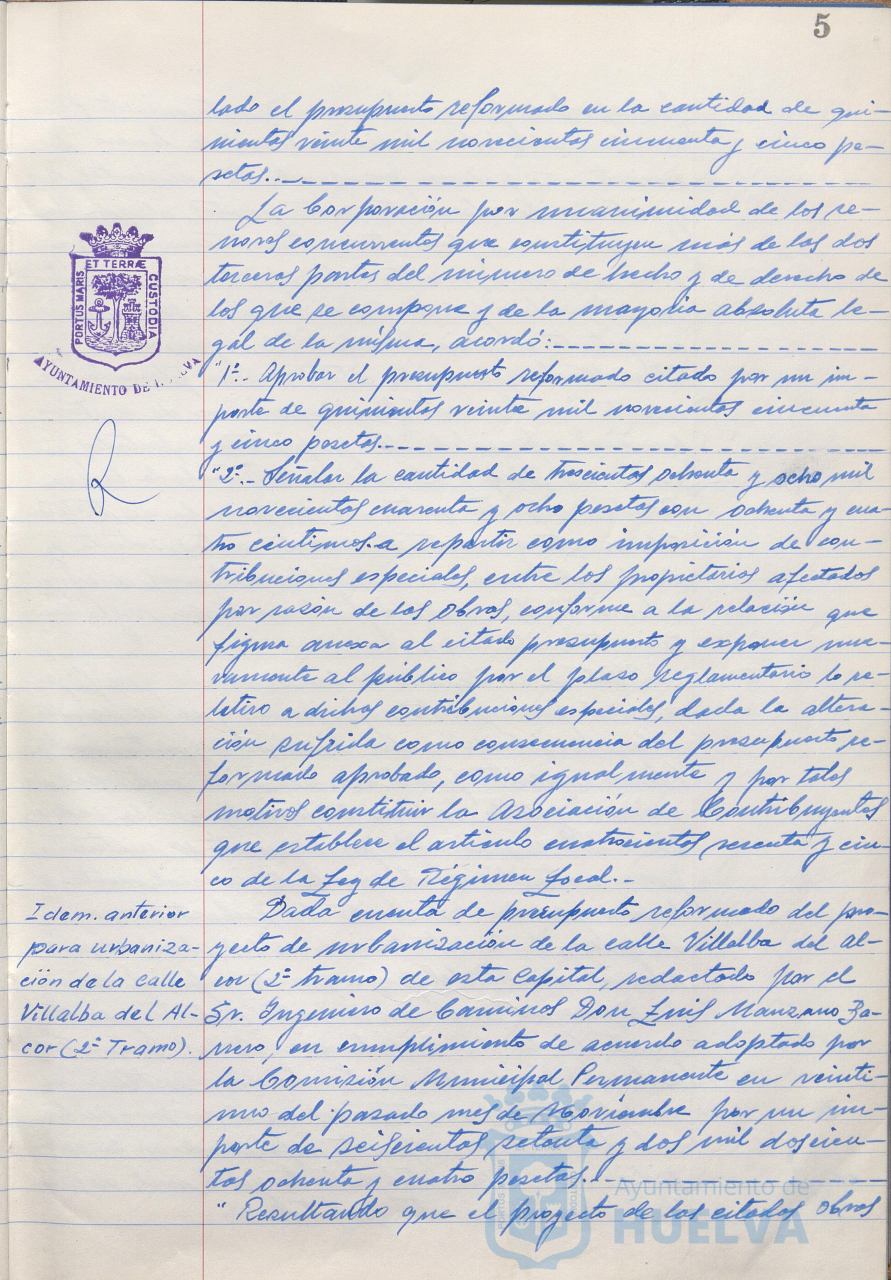 5
lado el presupuesto reformado en la cantidad de qui-
nientas veinte mil novecientas cincuenta y cinco pe-
setas.
La Corporación por unanimidad de los se-
ñores concurrentes que constituyen más de las dos
terceras partes del número de hecho y de derecho de
los que se compone y de la mayoría absoluta le-
gal de la misma, acordó:
"1º.- Aprobar el presupuesto reformado citado por un im-
porte de quinientas veinte mil novecientas cincuenta
y cinco pesetas.
"2º.- Señalar la cantidad de trescientas ochenta y ocho mil
novecientas cuarenta y ocho pesetas con ochenta y cua-
tro céntimos a repartir como imposición de con-
tribuciones especiales, entre los propietarios afectados
por razón de las obras, conforme a la relación que
figura anexa al citado presupuesto y exponer nue-
vamente al público por el plazo reglamentario lo re-
lativo a dichas contribuciones especiales, dada la altera-
ción sufrida como consecuencia del presupuesto re-
formado aprobado, como igualmente y por tales
motivos constituir la Asociación de Contribuyentes
que establece el artículo cuatrocientos sesenta y cin-
co de la Ley de Régimen Local.-
Idem. anterior
para urbaniza-
ción de la calle
Villalba del Al-
cor (2º Tramo).
Dada cuenta de presupuesto reformado del pro-
yecto de urbanización de la calle Villalba del Al-
cor (2º tramo) de esta Capital, redactado por el
Sr. Ingeniero de Caminos Don Luis Manzano Ba-
rrero, en cumplimiento de acuerdo adoptado por
la Comisión Municipal Permanente en veinti-
uno del pasado mes de Noviembre por un im-
porte de seiscientas setenta y dos mil doscien-
tas ochenta y cuatro pesetas.
"Resultando que el proyecto de las citadas obras
PORTUS MARIS ET TERRÆ CUSTODIA
AYUNTAMIENTO DE HUELVA
Ayuntamiento de
HUELVA